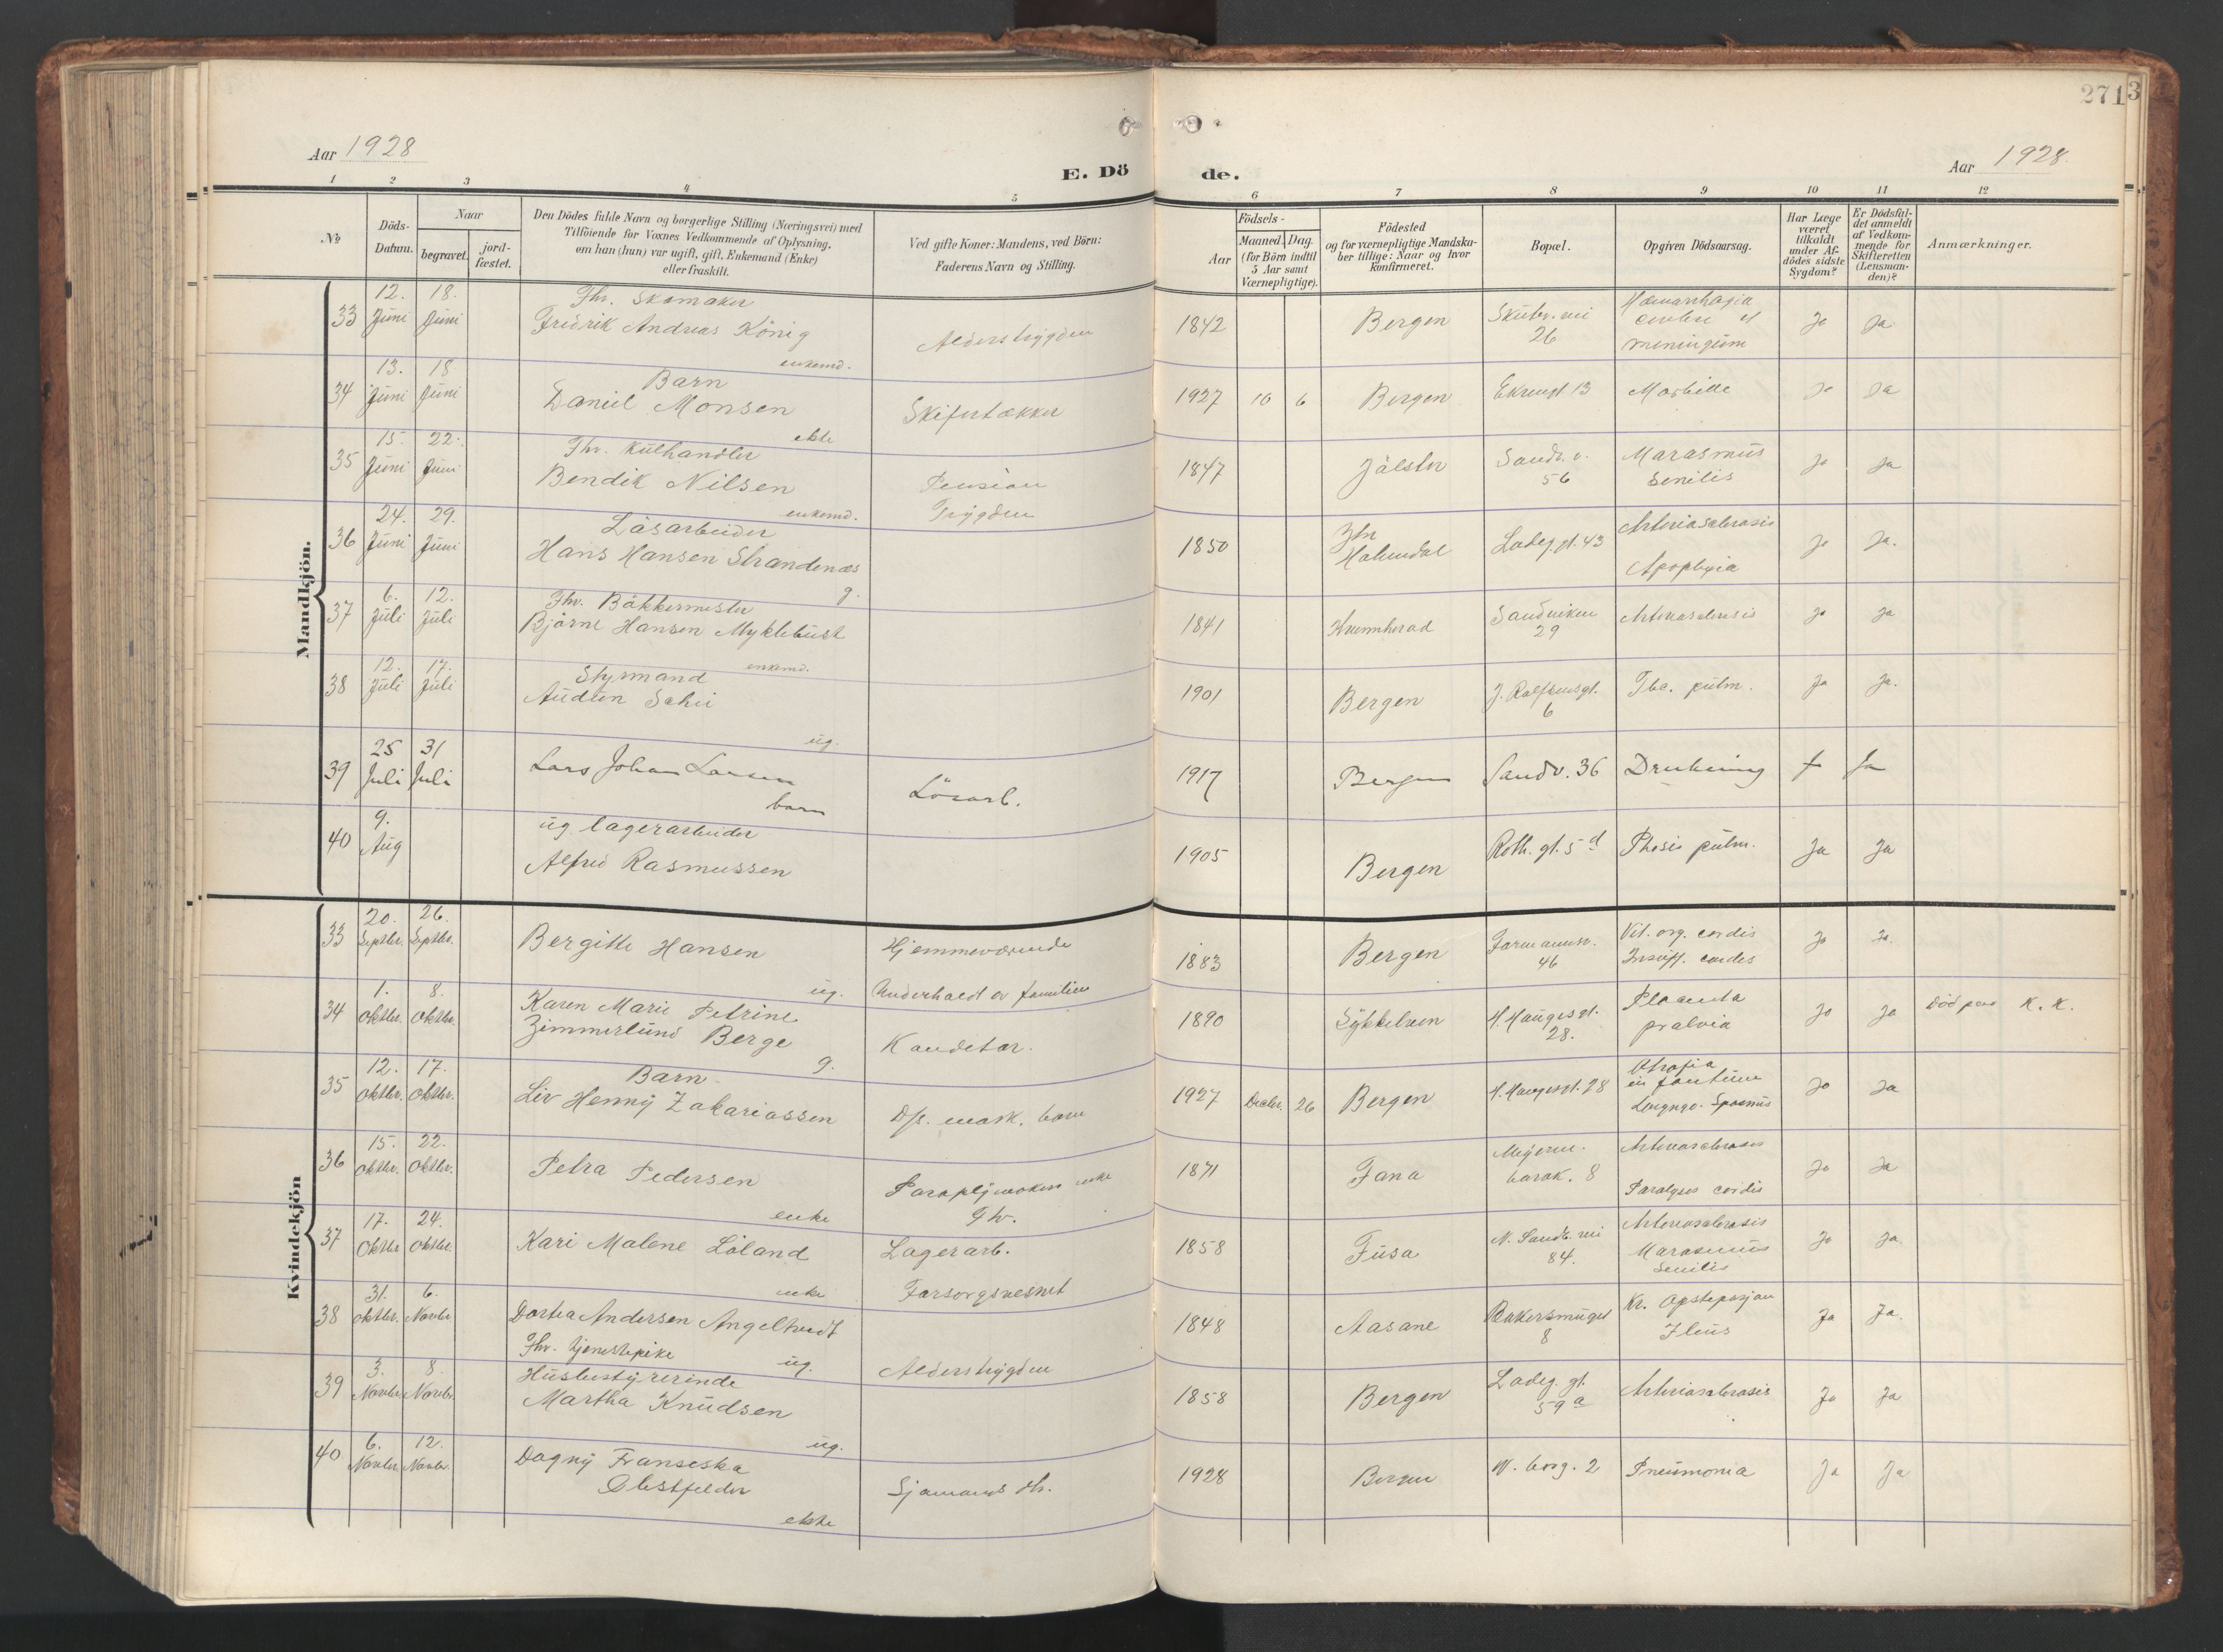 271
3
Aar 1928
E. Dö
de.
Aar 1928.
1 2 3 4 5 6 7 8 9 10 11 12
No
Döds-Datum.
Naar
begravet.
jord-fæstet.
Den Dödes fulde Navn og borgerlige Stilling (Næringsvei) med
Tilföiende for Voxnes Vedkommende af Oplysning,
om han (hun) var ugift, gift, Enkemand (Enke)
eller fraskilt.
Ved gifte Koner: Mandens, ved Börn:
Faderens Navn og Stilling.
Födsels-
Aar
Maaned. Dag.
(for Börn indtil
5 Aar samt
Værnepligtige).
Födested
og for værnepligtige Mandska-
ber tillige: Naar og hvor
konfirmeret.
Bopæl.
Opgiven Dödsaarsag.
Har Læge
været
tilkaldt
under Af-
dödes sidste
Sygdom?
Er Dödsfal-
det anmeldt
af Vedkom-
mende for
Skifteretten
(Lensman-
den)?
Anmærkninger.
Mandkjön.
33 12. Juni 18. Juni Fhv. Skomaker
Fredrik Andreas König enkemd. Alderstrygden 1842 Bergen Skutev. vei 26 Hæmorrhagia cerebri et meningium Ja Ja
34 13. Juni 18 Juni Barn
Daniel Monsen ekte Skifertækker 1927 10 6 Bergen Ekrengt 13 Morbille Ja Ja
35 15. Juni 22. Juni Fhv. Kulhandler
Bendik Nilsen enkemd. Pension Trygden 1847 Jölster Sandv. v. 56 Marasmus senilis Ja Ja
36 24. Juni 29. Juni Lösarbeider
Hans Hansen Strandenæs g. 1850 Ytre Holmedal Ladeg. gt. 43 Arteriosclerosis Apoplexia Ja Ja.
37 6. Juli 12. Juli Fhv. Bakkermester
Bjarne Hansen Myklebust enkemd. 1841 Kvinnherad Sandviken 29 Arteriosclerosis Ja Ja
38 12. Juli 17. Juli Styrmand
Audun Schii ug. 1901 Bergen J. Rolfsensgt. 6 Tbc. pulm. Ja Ja.
39 25 Juli 31 Juli Lars Johan Larsen barn Lösarb. 1917 Bergen Sandv. 36 Drukning Ja Ja
40 9. Aug ug. lagerarbeider
Alfred Rasmussen 1905 Bergen Roth. gt. 5 d Phtisis pulm. Ja Ja
Kvindekjön
33 20. Septbr. 26. Septbr. Bergitte Hansen ug. Hjemmeværende Underholdt av familien 1883 Bergen Formannsv. 46 Vit. org. cordis Insuff. cordis Ja Ja.
34 1. Oktbr. 8. Oktbr. Karen Marie Petrine
Zimmerlund Berge g. Kandetør. 1890 Sykkelven H. Haugesgt. 28. Placenta prælvia Ja Ja Död paa K. K.
35 12. Oktbr. 17. Oktbr. Barn
Liv Henny Zakariassen Dp. mask. barn 1927 Decbr. 26 Bergen H. Haugesgt. 28 Atrofia infantum Laryngo-Spasmus Ja Ja
36 15. Oktbr. 22. Oktbr. Petra Pedersen enke Paraplymakers enke 1871 Fana Meyerm. barak. 8 Arteriosclerosis Paralyses cordis Ja Ja
37 17. Oktbr 24. Oktbr. Kari Malene Löland enke Fhv. Lagerarb. Forsorgsvesnet 1858 Fusa N. Sandv. vei 84. Arteriosclerosis Marasmus senilis Ja Ja.
38 31. Oktbr. 6. Novbr Dortea Andersen Angeltvedt
Fhv. tjenestepike ug. Alderstrygden 1848 Aasane Bakersmuget 8 Kr. Opstipasjon Ileus Ja Ja.
39 3. Novbr 8. Novbr. Husbestyrerinde
Martha Knudsen ug. 1858 Bergen Ladeg. gt. 59 a Arteriosclerosis Ja Ja
40 6. Novbr. 12. Novbr. Dagny Franseska
Obstfelder ekte Sjømands dt. 1928 Bergen W. borg. 2 Pneumonia Ja Ja